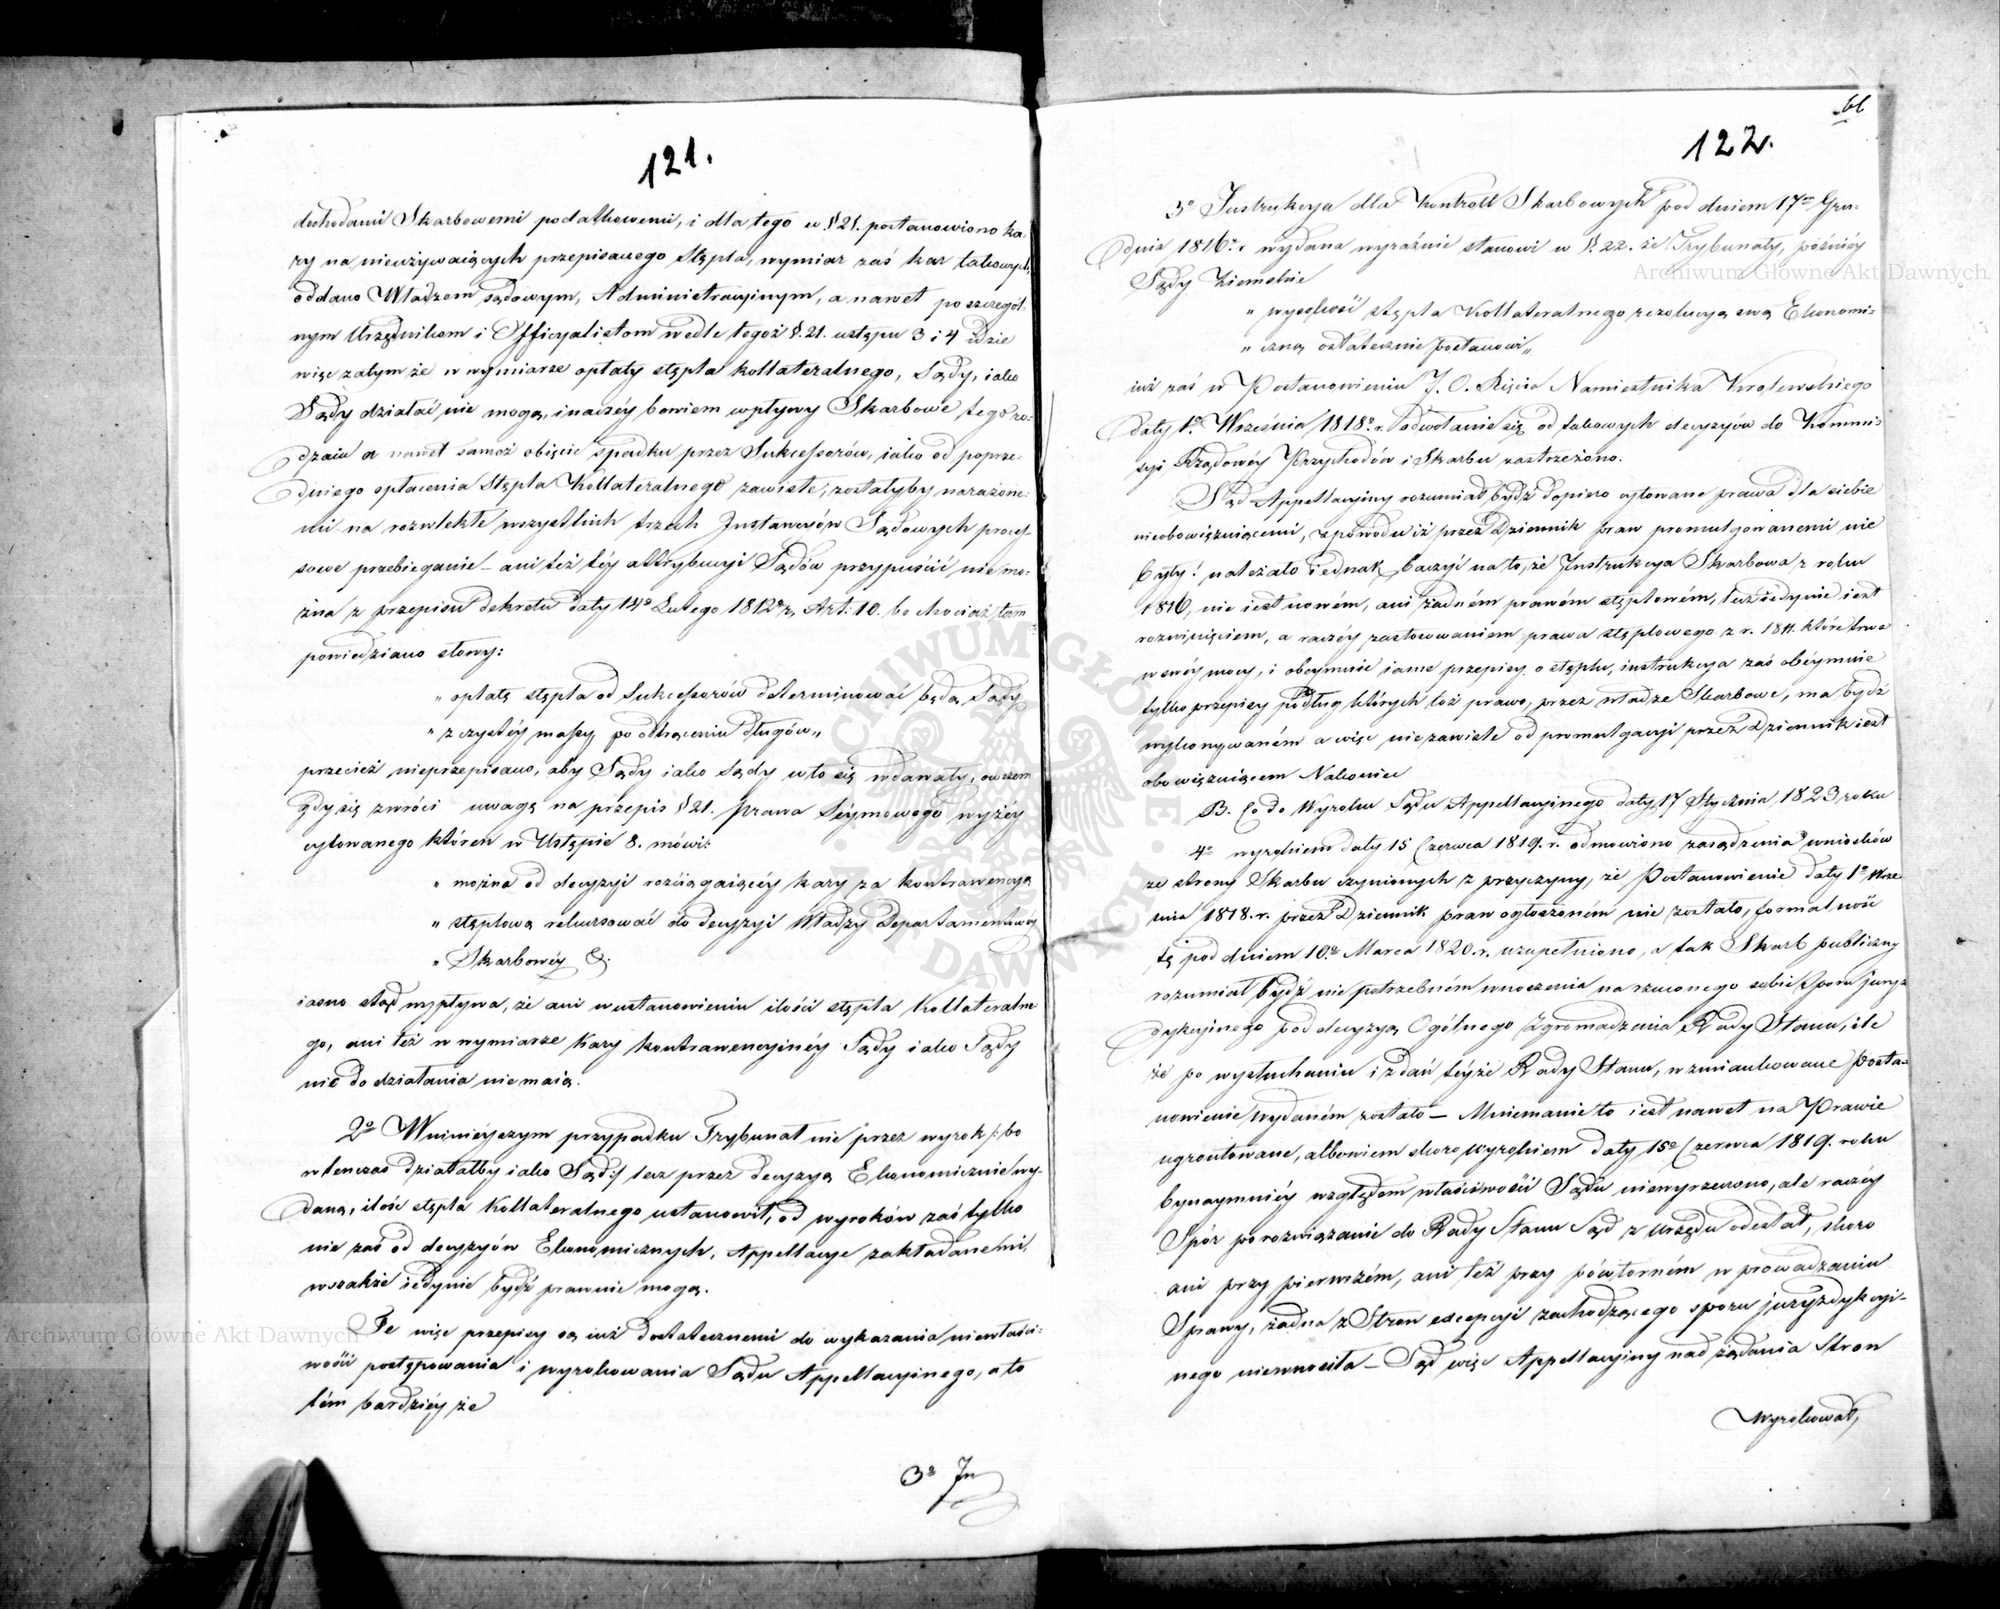 121.
dochodami Skarbowemi podatkowemi, i dla tego w § 21. postanowiono ka-
ry na nieużywaiących przepisanego Stępla, wymiar zaś kar takowych,
oddano Władzom sądowym, Administracyinym, a nawet poszczegól-
nym Urzędnikom i Officyalistom wedle tegoż §. 21. ustępu 3 i 4 idzie
więc zatym że w wymiarze opłaty stępla kollateralnego, Sądy, iako
Sądy działać nie mogą, inaczéy bowiem wpływy Skarbowe tego ro-
dzaiu a nawet samoż obięcie spadku przez Sukcessorów, iako od poprze-
dniego opłacenia Stępla Kollateralnego zawisłe, zostałyby narażone-
mi na rozwlekłe wszystkich trzech Instancyów Sądowych proces-
sowe przebieganie – ani też téy attrybucyi Sądów przypuścić nie mo-
żna z przepisu dekretu daty 14o Lutego 1812o r, Art: 10. bo chociaż tam
powiedziano słowy:
" opłatę stępla od Sukcessorów determinować będą Sądy
" z czystéy massy po odtrąceniu długów„
przecież nieprzepisano, aby Sądy iako sądy w to się wdawały, owszem
gdy się zwróci uwagę na przepis § 21. prawa Séymowego wyżéy
cytowanego któren w Ustępie 8. mówi:
" można od decyzyi rozciągaiącéy kary za kontrawencyą
" stęplową rekursować do decyzyi Władzy Departamentowéy
" Skarbowéy &.
iasno stąd wypływa, że ani w ustanowieniu ilości stępla Kollateralne-
go, ani też w wymiarze kary kontrawencyinéy Sądy iako Sądy
nic do działania nie maią.
2o W ninieyszym przypadku Trybunał nie przez wyrok /: bo
wtenczas działałby iako Sąd :/ lecz przez decyzyą Ekonomicznie wy-
daną, ilość stępla Kollateralnego ustanowił, od wyroków zaś tylko
nie zaś od decyzyów Ekonomicznych, Appellacye zakładanemi
wszakże iedynie bydź prawnie mogą.
Te więc przepisy są iuż dostatecznemi do wykazania niewłaści-
wości postępowania i wyrokowania Sądu Appellacyinego, a to
tém bardziéy że
3o In
66
122.
3o Instrukcya dla Kontroll Skarbowych pod dniem 17m Gru-
dnia 1816o r. wydana wyraźnie stanowi w §. 22. że Trybunały, późniéy
Sądy Ziemskie
" wysokość stępla Kollateralnego rezolucyą swą Ekonomi-
" czną ostatecznie postanowi„
iuż zaś w Postanowieniu J. O. Xięcia Namiestnika Królewskiego
daty 1o Września 1818o r. odwołanie się od takowych decyzyów do Kommis-
syi Rządowéy Przychodów i Skarbu zastrzeżono.
Sąd Appellacyiny rozumiał bydź dopiero cytowane prawa dla siebie
nieobowięzuiącemi, z powodu iż przez Dziennik praw promulgowanemi nie
były! należało iednak baczyć na to, że Instrukcya Skarbowa z roku
1816, nie iest nowém, ani żadném prawem stęplowém, lecz iedynie iest
rozwinięciem, a raczéy zastosowaniem prawa stęplowego z r. 1811. które trwa
w swéy mocy, i obeymuie same przepisy o stęplu, instrukcya zaś obéymuie
tylko przepisy podług których toż prawo, przez władze Skarbowe, ma bydź
wykonywaném a więc niezawisłe od promulgacyi przez Dziennik iest
obowięzuiącem Nakoniec
B. Co do Wyroku Sądu Appellacyinego daty 17 Stycznia 1823 roku
4o wyrokiem daty 15 Czerwca 1819. r. odmówiono zasądzenia wniosków
ze strony Skarbu czynionych z przyczyny, że Postanowienie daty 1o Wrze-
śnia 1818. r. przez Dziennik praw ogłoszoném nie zostało, formalność
tę pod dniem 10o Marca 1820. r. uzupełniono, a tak Skarb publiczny
rozumiał bydź nie potrzebném wnoszenia narzuconego sobie sporu jurys-
dykcyinego pod decyzyą Ogólnego Zgromadzenia Rady Stanu, ile
że po wysłuchaniu i zdań téyże Rady Stanu, wzmiankowane posta-
nowienie wydaném zostało – Mniemanie to iest nawet na Prawie
ugrontowane, albowiem skoro wyrokiem daty 15o Czerwca 1819. roku
bynaymniéy względem właściwości Sądu niewyrzeczono, ale raczéy
Spór po rozwiązanie do Rady Stanu Sąd z Urzędu odesłał, skoro
ani przy pierwszém, ani też przy powtórném wprowadzaniu
Sprawy, żadna z Stron excepcyi zachodzącego sporu juryzdykcyi-
nego niewnosiła – Sąd więc Appellacyiny nad żądania Stron
Wyrokował,
Archiwum Główne Akt Dawnych
Archiwum Główne Akt Dawnych
ARCHIWUM GŁÓWNE AKT DAWNYCH